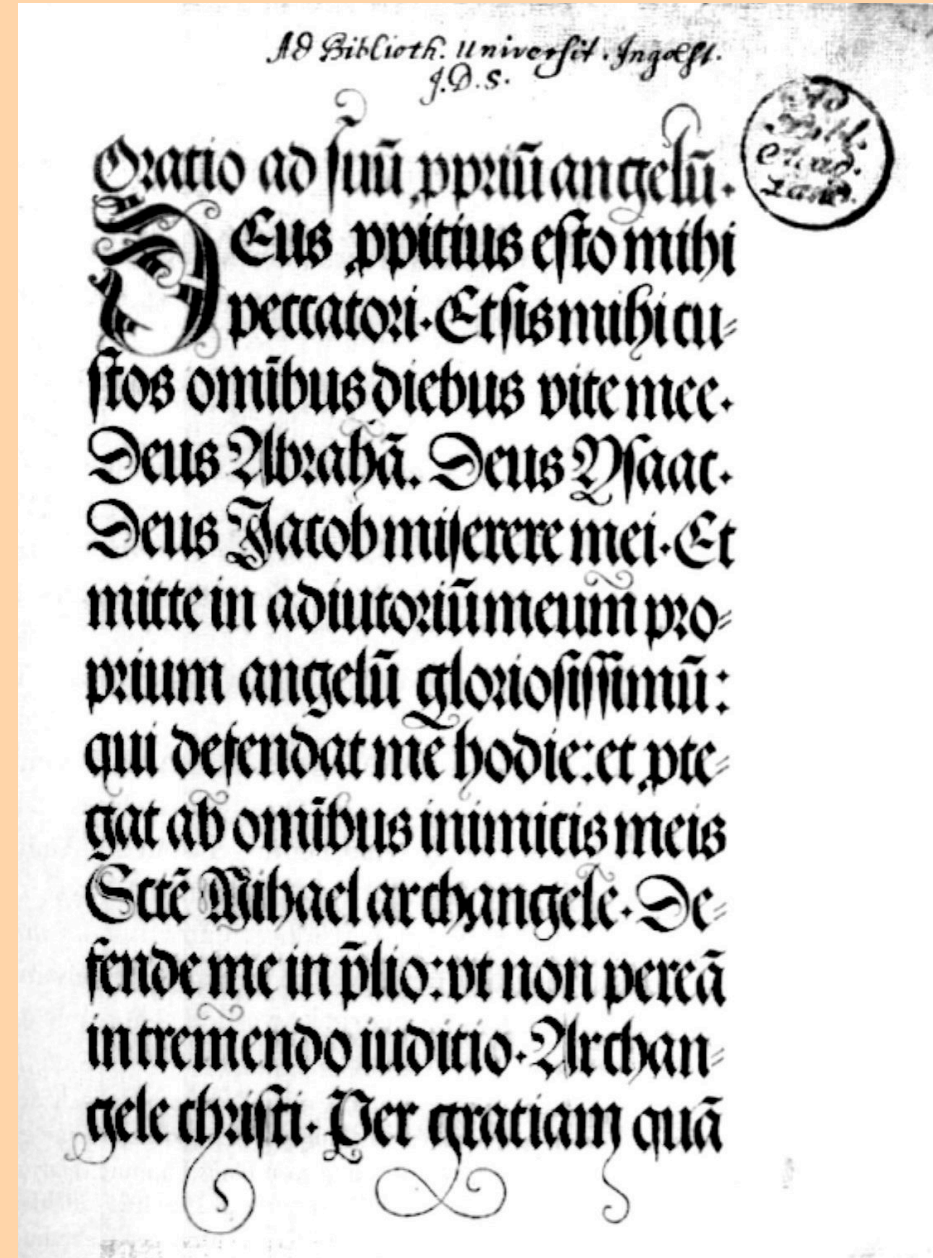 Ad Biblioth. Universit. Ingolst.
J.D.S.
Ad
Bibl.
Acad.
Land.
Oratio ad suū ꝓpriū angelū.
DEus ꝓpitius esto mihi
peccatori. Et sis mihi cu⸗
stos omībus diebus vite mee.
Deus Abrahā. Deus Ysaac.
Deus Jacob miserere mei. Et
mitte in adiutoriū meum pro⸗
prium angelū gloriosissimū:
qui defendat me hodie: et ꝓte⸗
gat ab omībus inimicis meis
Sctē Mihael archangele. De⸗
fende me in p̄lio: vt non pereā
in tremendo iudicio. Archan⸗
gele christi. Per gratiam quā